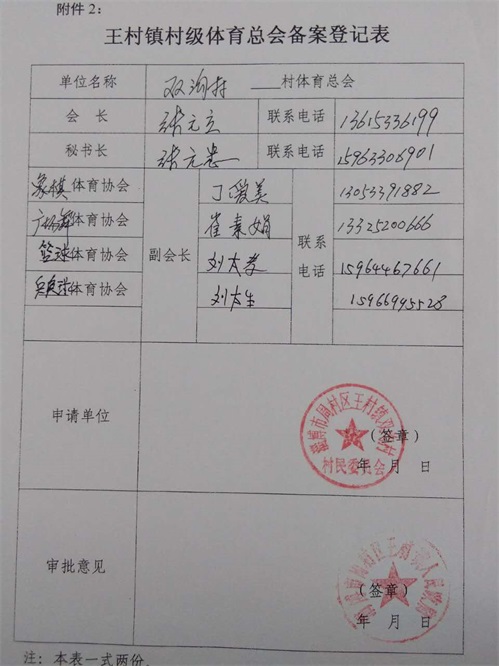 附件2:
王村镇村级体育总会备案登记表
单位名称 双沟村 村体育总会
会 长 张元立 联系电话 13615336199
秘书长 张元忠 联系电话 15963306901
象棋体育协会 丁爱美 13053391882
广场舞体育协会 崔素娟 13325200666
篮球体育协会 副会长 刘大孝 联系电话 15964467661
体育协会 刘大生 15966945528
申请单位
淄博市周村区王村镇双沟村
村民委员会
(签章)
年 月 日
审批意见
(签章)
年 月 日
注:本表一式两份.